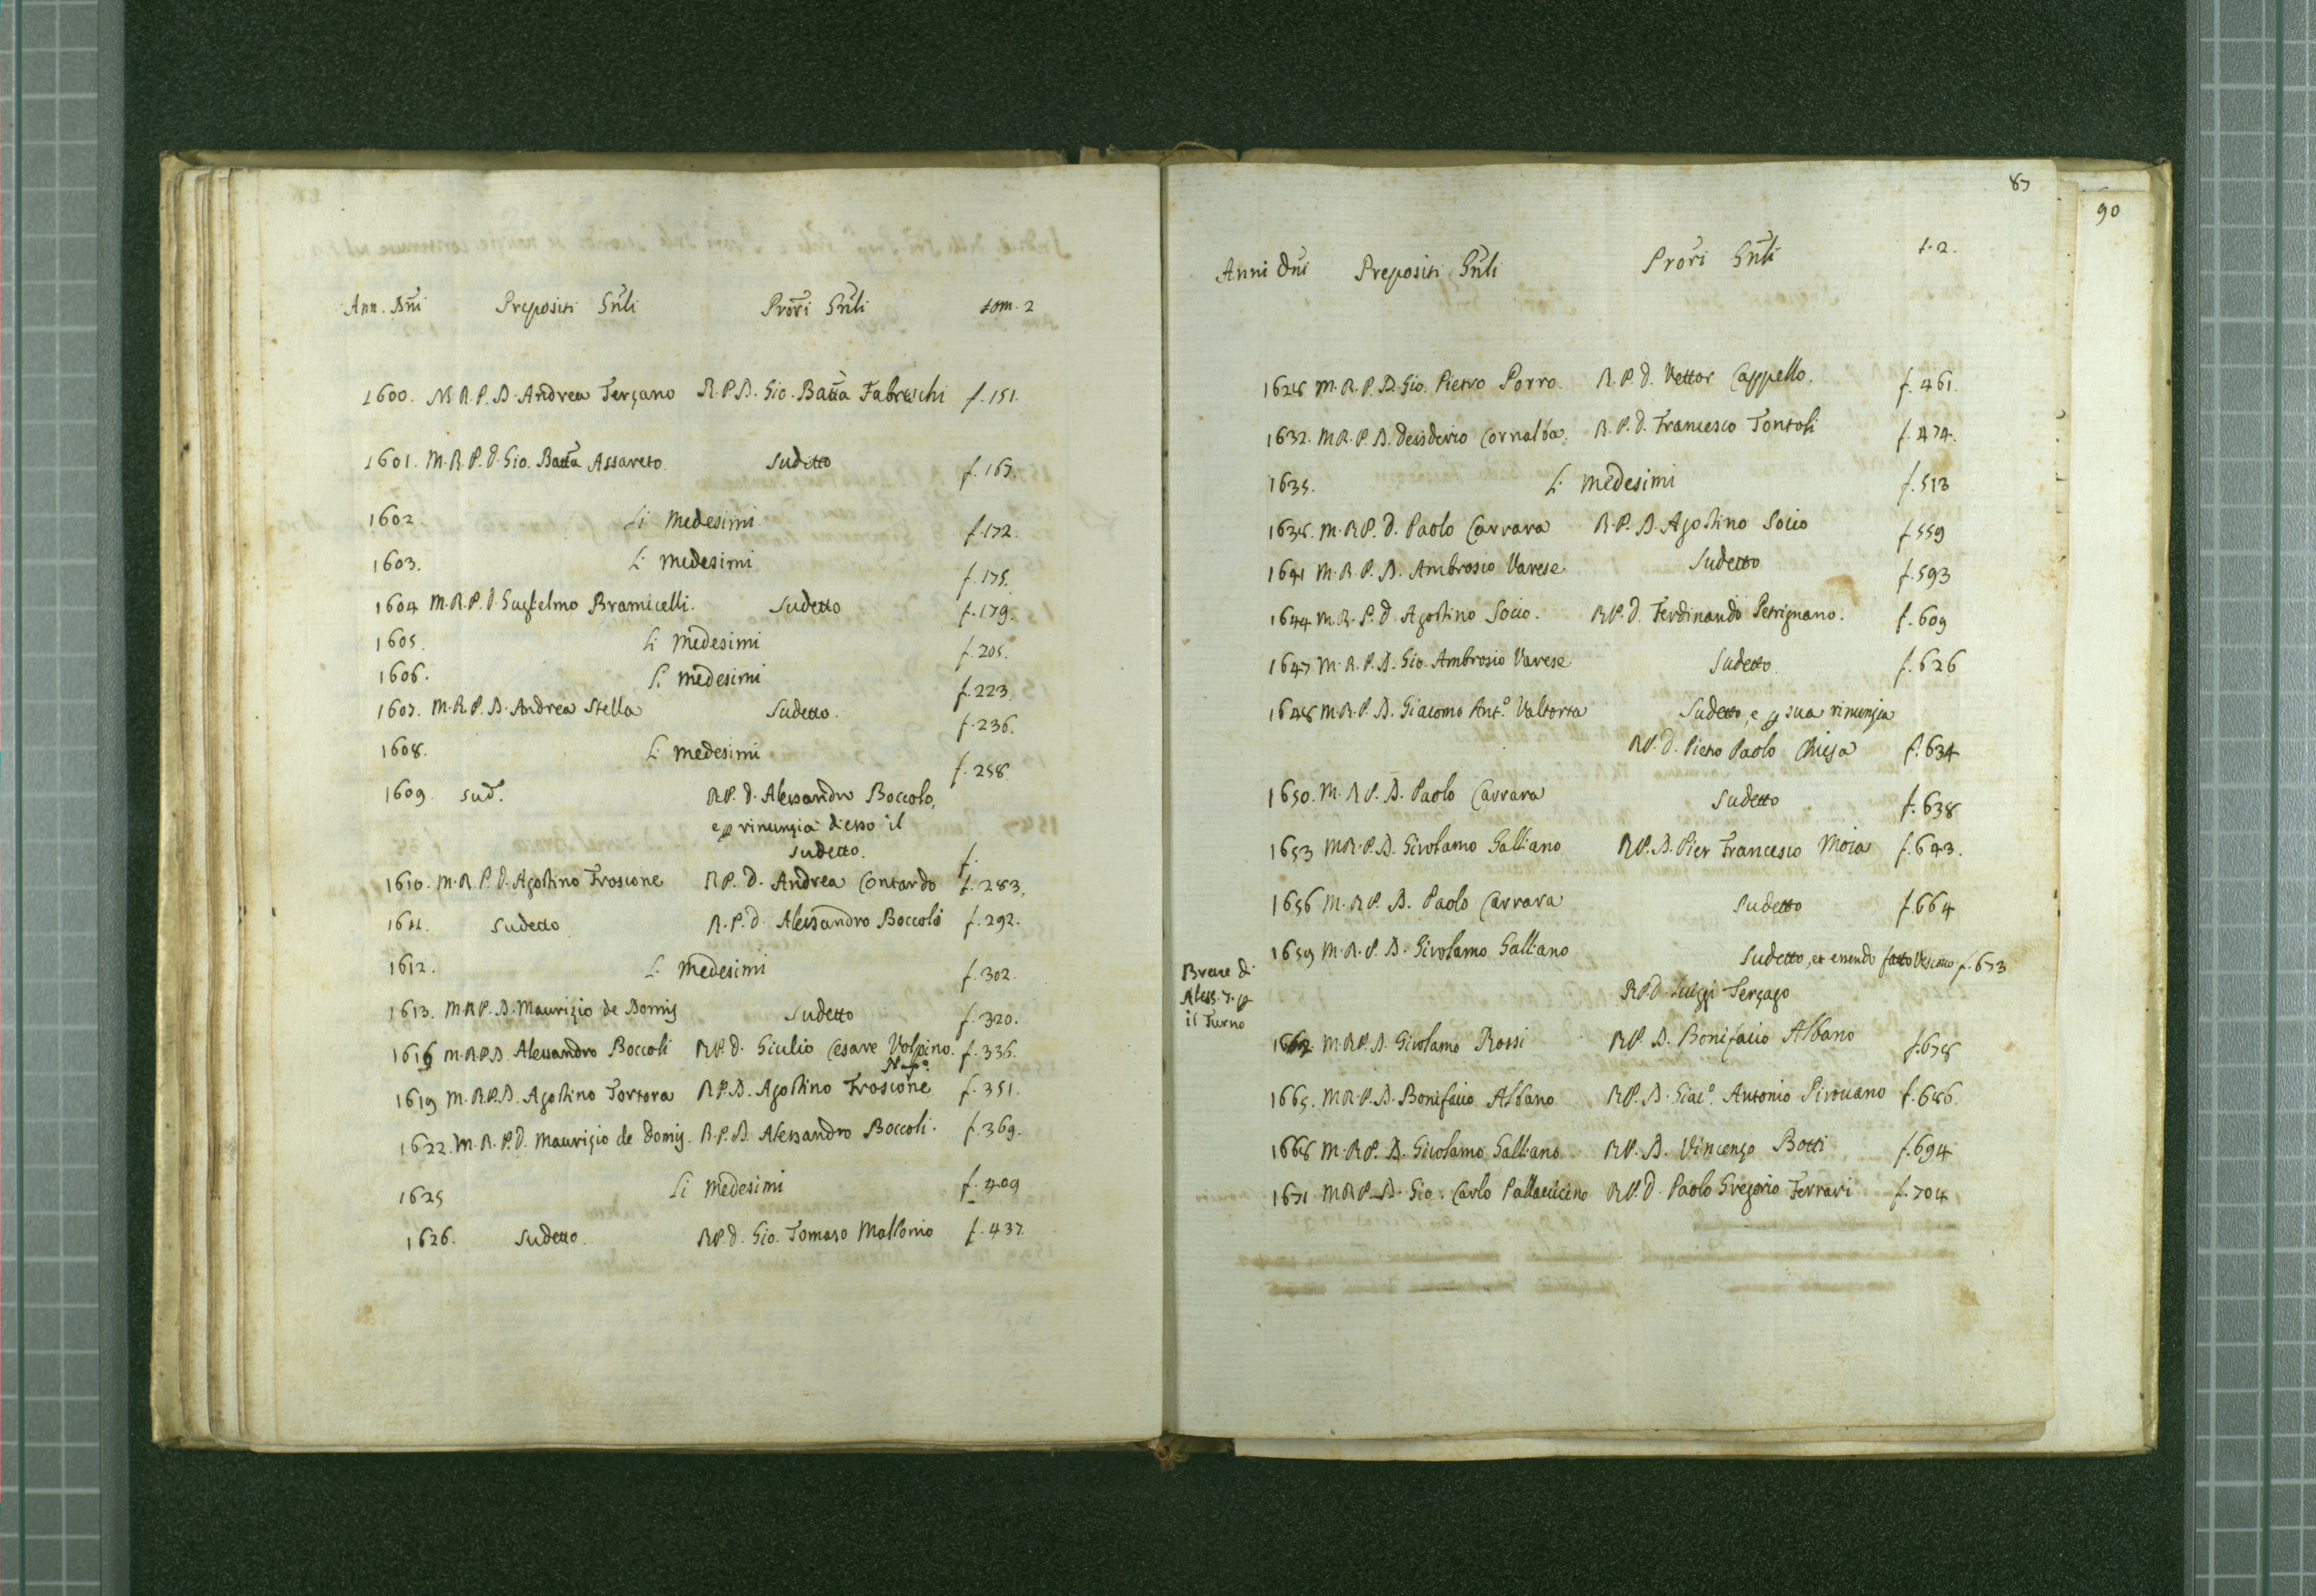 Ann. Dni Prepositi Gnli Prori Gnli tom. 2
1600. M. R. P. D. Andrea Terzano R. P. D. Gio. Batta Fabreschi f. 151.
1601. M. R. P. D. Gio. Batta Assareto. Sudetto f. 167.
1602. Li Medesimi f. 172.
1603. Li medesimi f. 175.
1604 M. R. P. D. Guglielmo Bramicelli. Sudetto f. 179.
1605. Li Medesimi f. 205.
1606. Li medesimi f. 223.
1607. M. R. P. D. Andrea Stella Sudetto. f. 236.
1608. Li medesimi f. 258.
1609 sud. RP. D. Alessandro Boccolo,
e p rinunzia di esso il
sudetto. f.
1610. M. R. P. D. Agostino Froscone RP. D. Andrea Contardo f. 283.
1611. Sudetto R. P. D. Alessandro Boccoli f. 292.
1612. Li Medesimi f. 302.
1613. M R P. D. Maurizio de Domis Sudetto f. 320.
1616 M. R P. D. Alessandro Boccoli RP. D. Giulio Cesare Volpino. f. 336.
1619 M. R. P. D. Agostino Tortora RP. D. Agostino Froscone f. 351.
1622. M. R. P. D. Maurizio de Domis. R. P. D. Alessandro Boccoli. f. 369.
1625 Li Medesimi f. 409
1626. Sudetto. RP. D. Gio. Tomaso Mallonio f. 437.
87
90
Anni Dni Prepositi Gnli Prori Gnli t. 2.
1628 M. R. P. D. Gio. Pietro Porro. R. P. D. Vettor Cappello. f. 461.
1632. M R. P. D. Desiderio Cornalba. R. P. D. Francesco Tontoli f. 474.
1635. Li medesimi f. 513
1638. M. R P. D. Paolo Carrara R. P. D Agostino Socio f. 559
1641 M. R. P. D. Ambrosio Varese Sudetto f. 593
1644 M. R. P. D Agostino Socio. RP. D. Ferdinando Petrignano. f. 609
1647 M. R. P. D. Gio. Ambrosio Varese Sudetto. f. 626
1648 M. R. P. D. Giacomo Ant.o Valtorta Sudetto, e p sua rinunzia
RP. D. Pietro Paolo Chiesa f. 634
1650. M. R P. D. Paolo Carrara Sudetto f. 638
1653 M R. P. D. Girolamo Galliano RP. D. Pier Francesco Moia f. 643.
1656 M. RP. D. Paolo Carrara Sudetto f. 664
1659 M. R. P. D. Girolamo Galliano Sudetto, et essendo fatto Vescovo f. 673
Breve di
Aless. 7. p
il Turno
RP. D. Luigi Terzago
1662 M. RP. D. Girolamo Rossi RP. D. Bonifacio Albano f. 678
1665. M R. P. D. Bonifacio Albano RP. D. Giac.o Antonio Pirovano f. 686.
1668 M. RP. D. Girolamo Galliano RP. D. Vincenzo Botti f. 694
1671 M R P. D. Gio. Carlo Pallavicino RP. D. Paolo Gregorio Ferrari f. 704